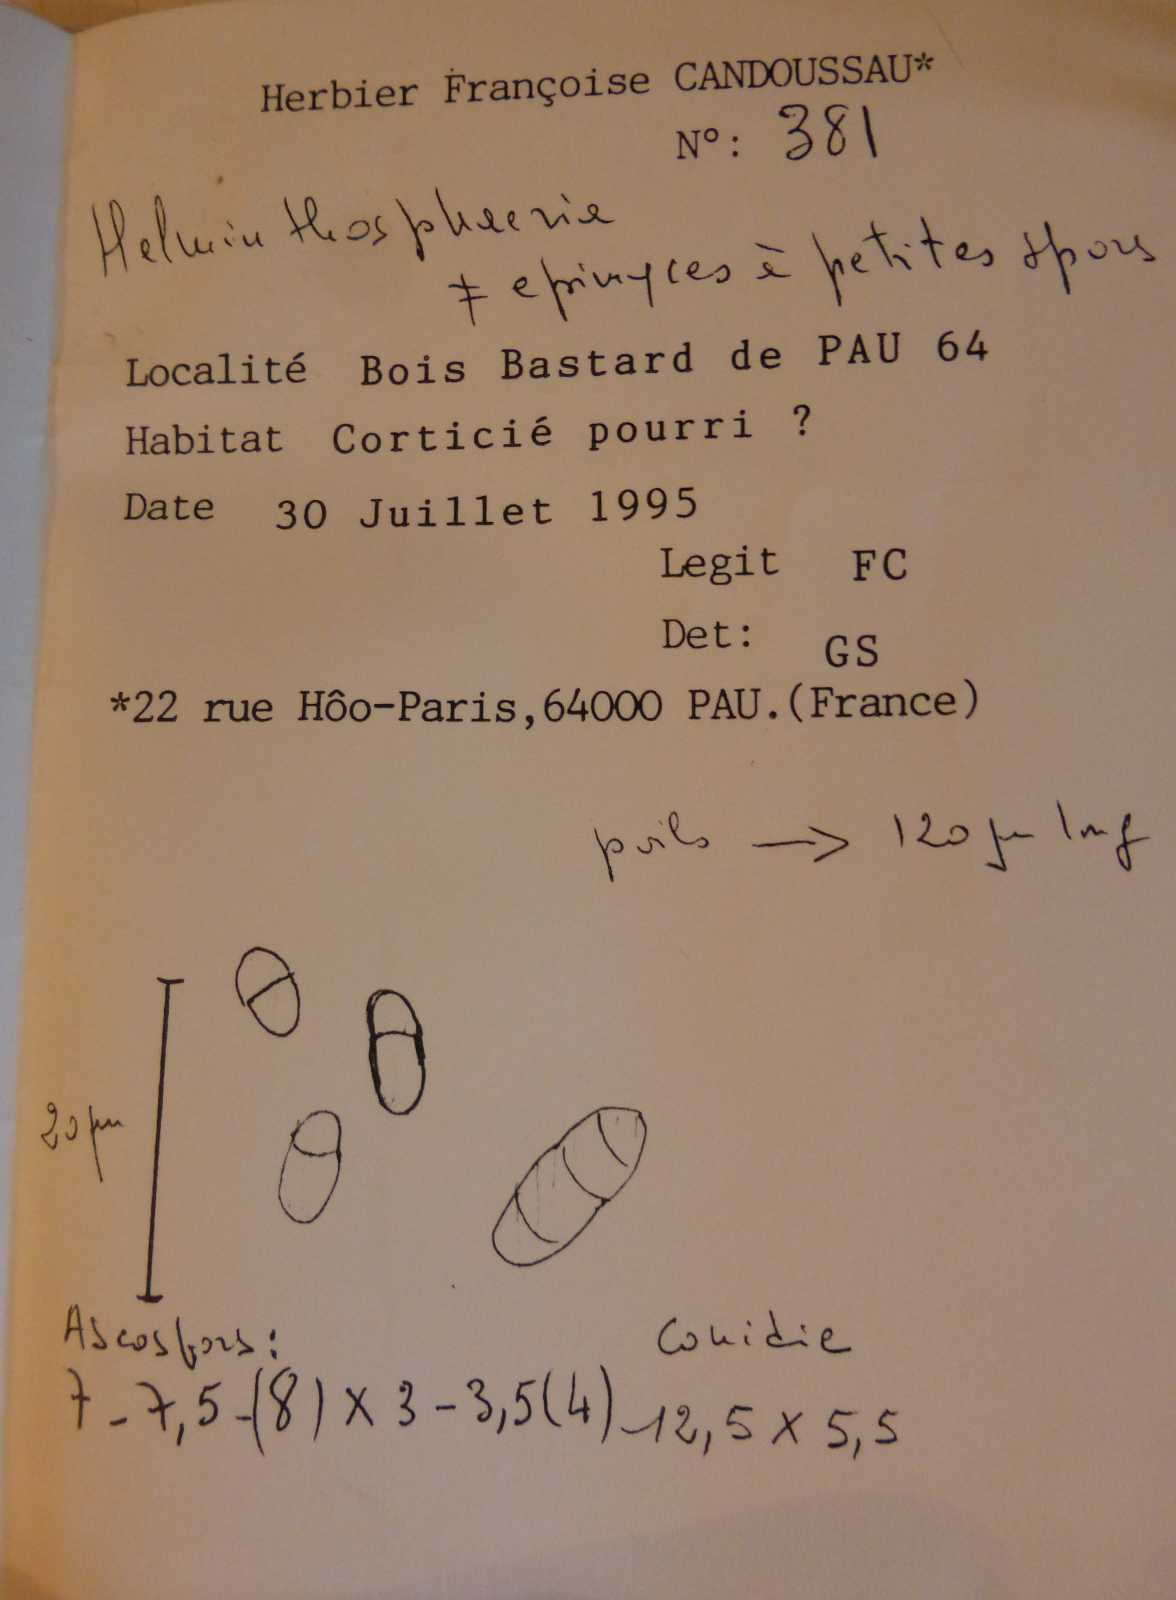 Herbier Françoise CANDOUSSAU*
N°: 381
Helminthosphaeria
≠ epimyces à petites spores
Localité Bois Bastard de PAU 64
Habitat Corticié pourri ?
Date 30 Juillet 1995
Legit FC
Det: GS
*22 rue Hôo-Paris,64000 PAU.(France)
poils → 120 µm long
20 µm
Ascospores:
7-7,5-(8) x 3-3,5(4)
Conidie
12,5 x 5,5